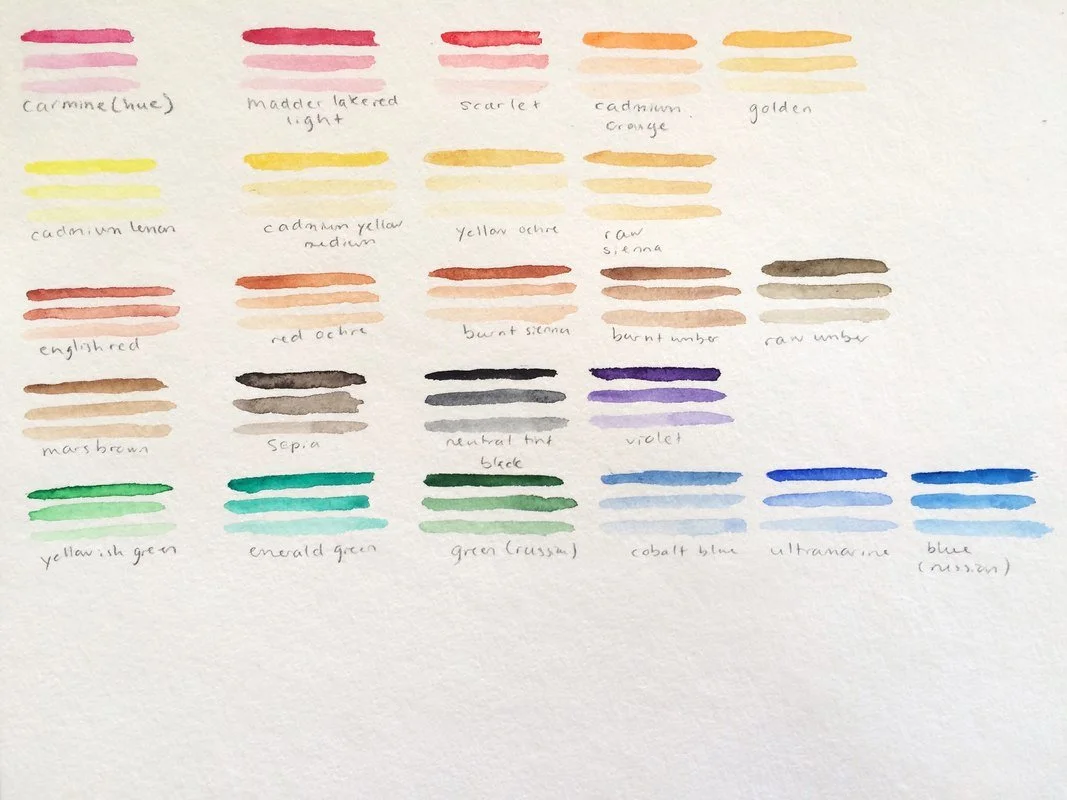 carmine (hue)
madder lakered
light
scarlet
cadmium
orange
golden
cadmium lemon
cadmium yellow
medium
yellow ochre
raw
sienna
english red
red ochre
burnt sienna
burnt umber
raw umber
mars brown
sepia
neutral tint
black
violet
yellowish green
emerald green
green (russian)
cobalt blue
ultramarine
blue
(russian)